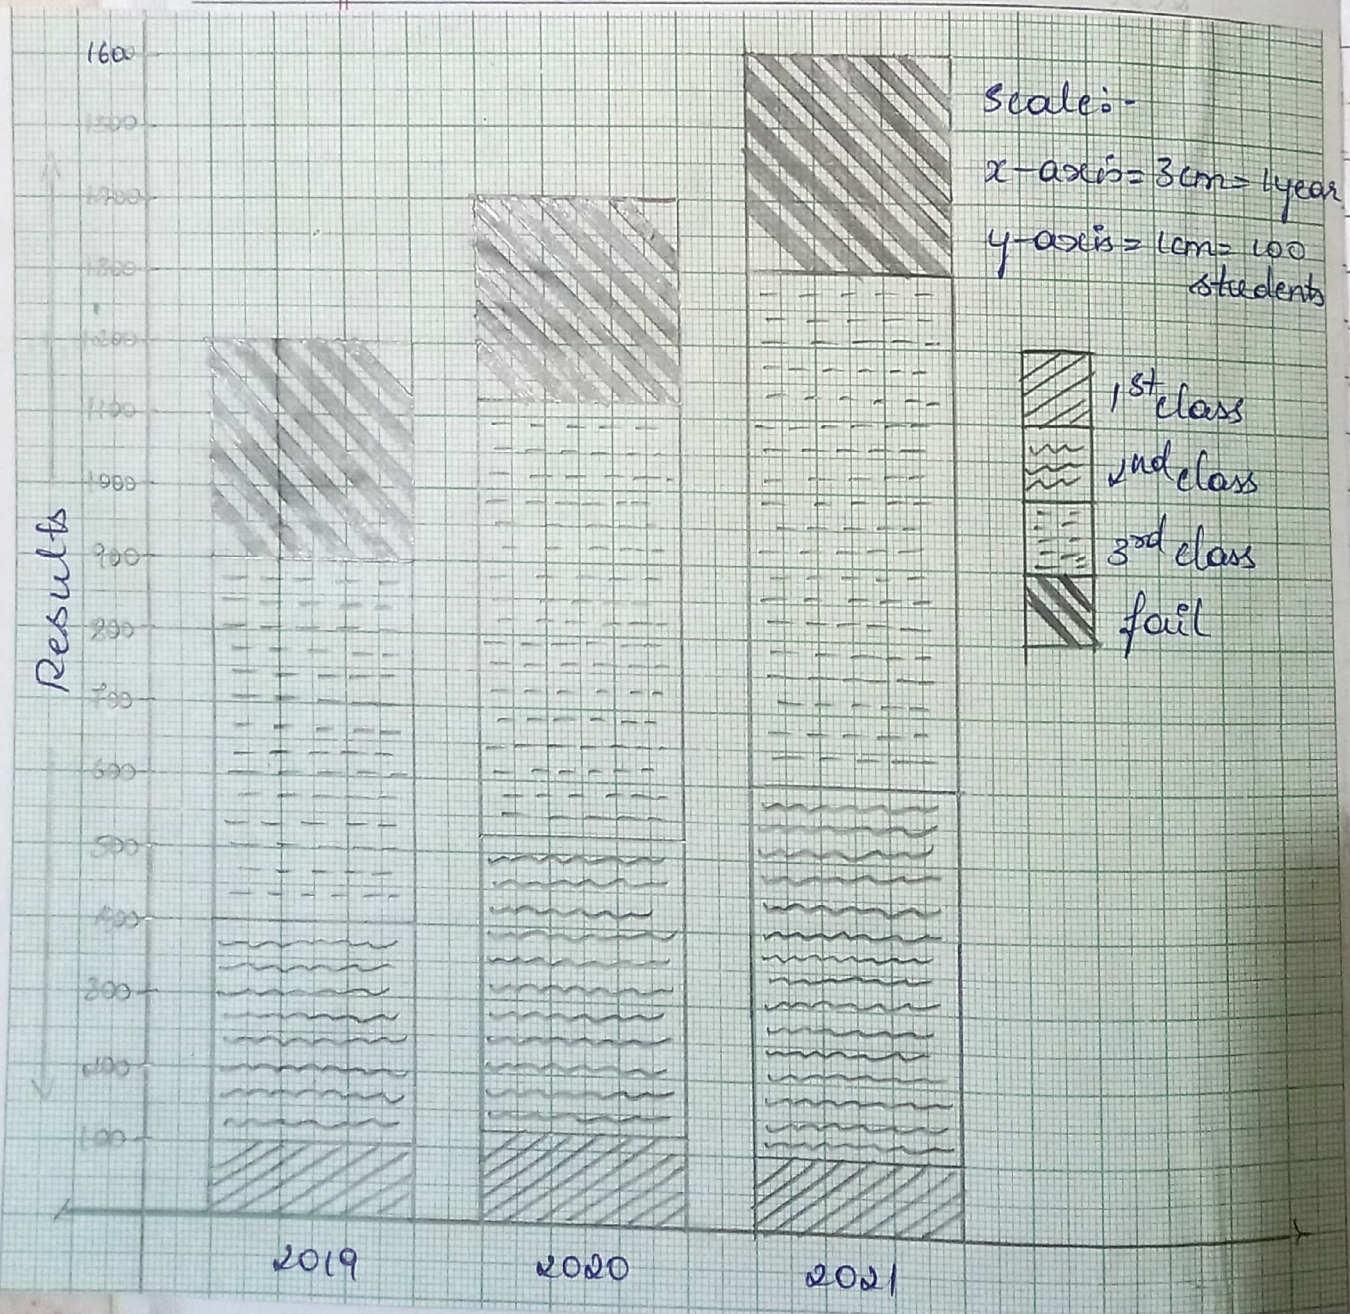 1600
1500
1400
1300
1200
1100
1000
900
800
700
600
500
400
300
200
100
Results
2019
2020
2021
Scale:-
x-axis = 3cm = 1year
y-axis = 1cm = 100
students
1st class
2nd class
3rd class
fail